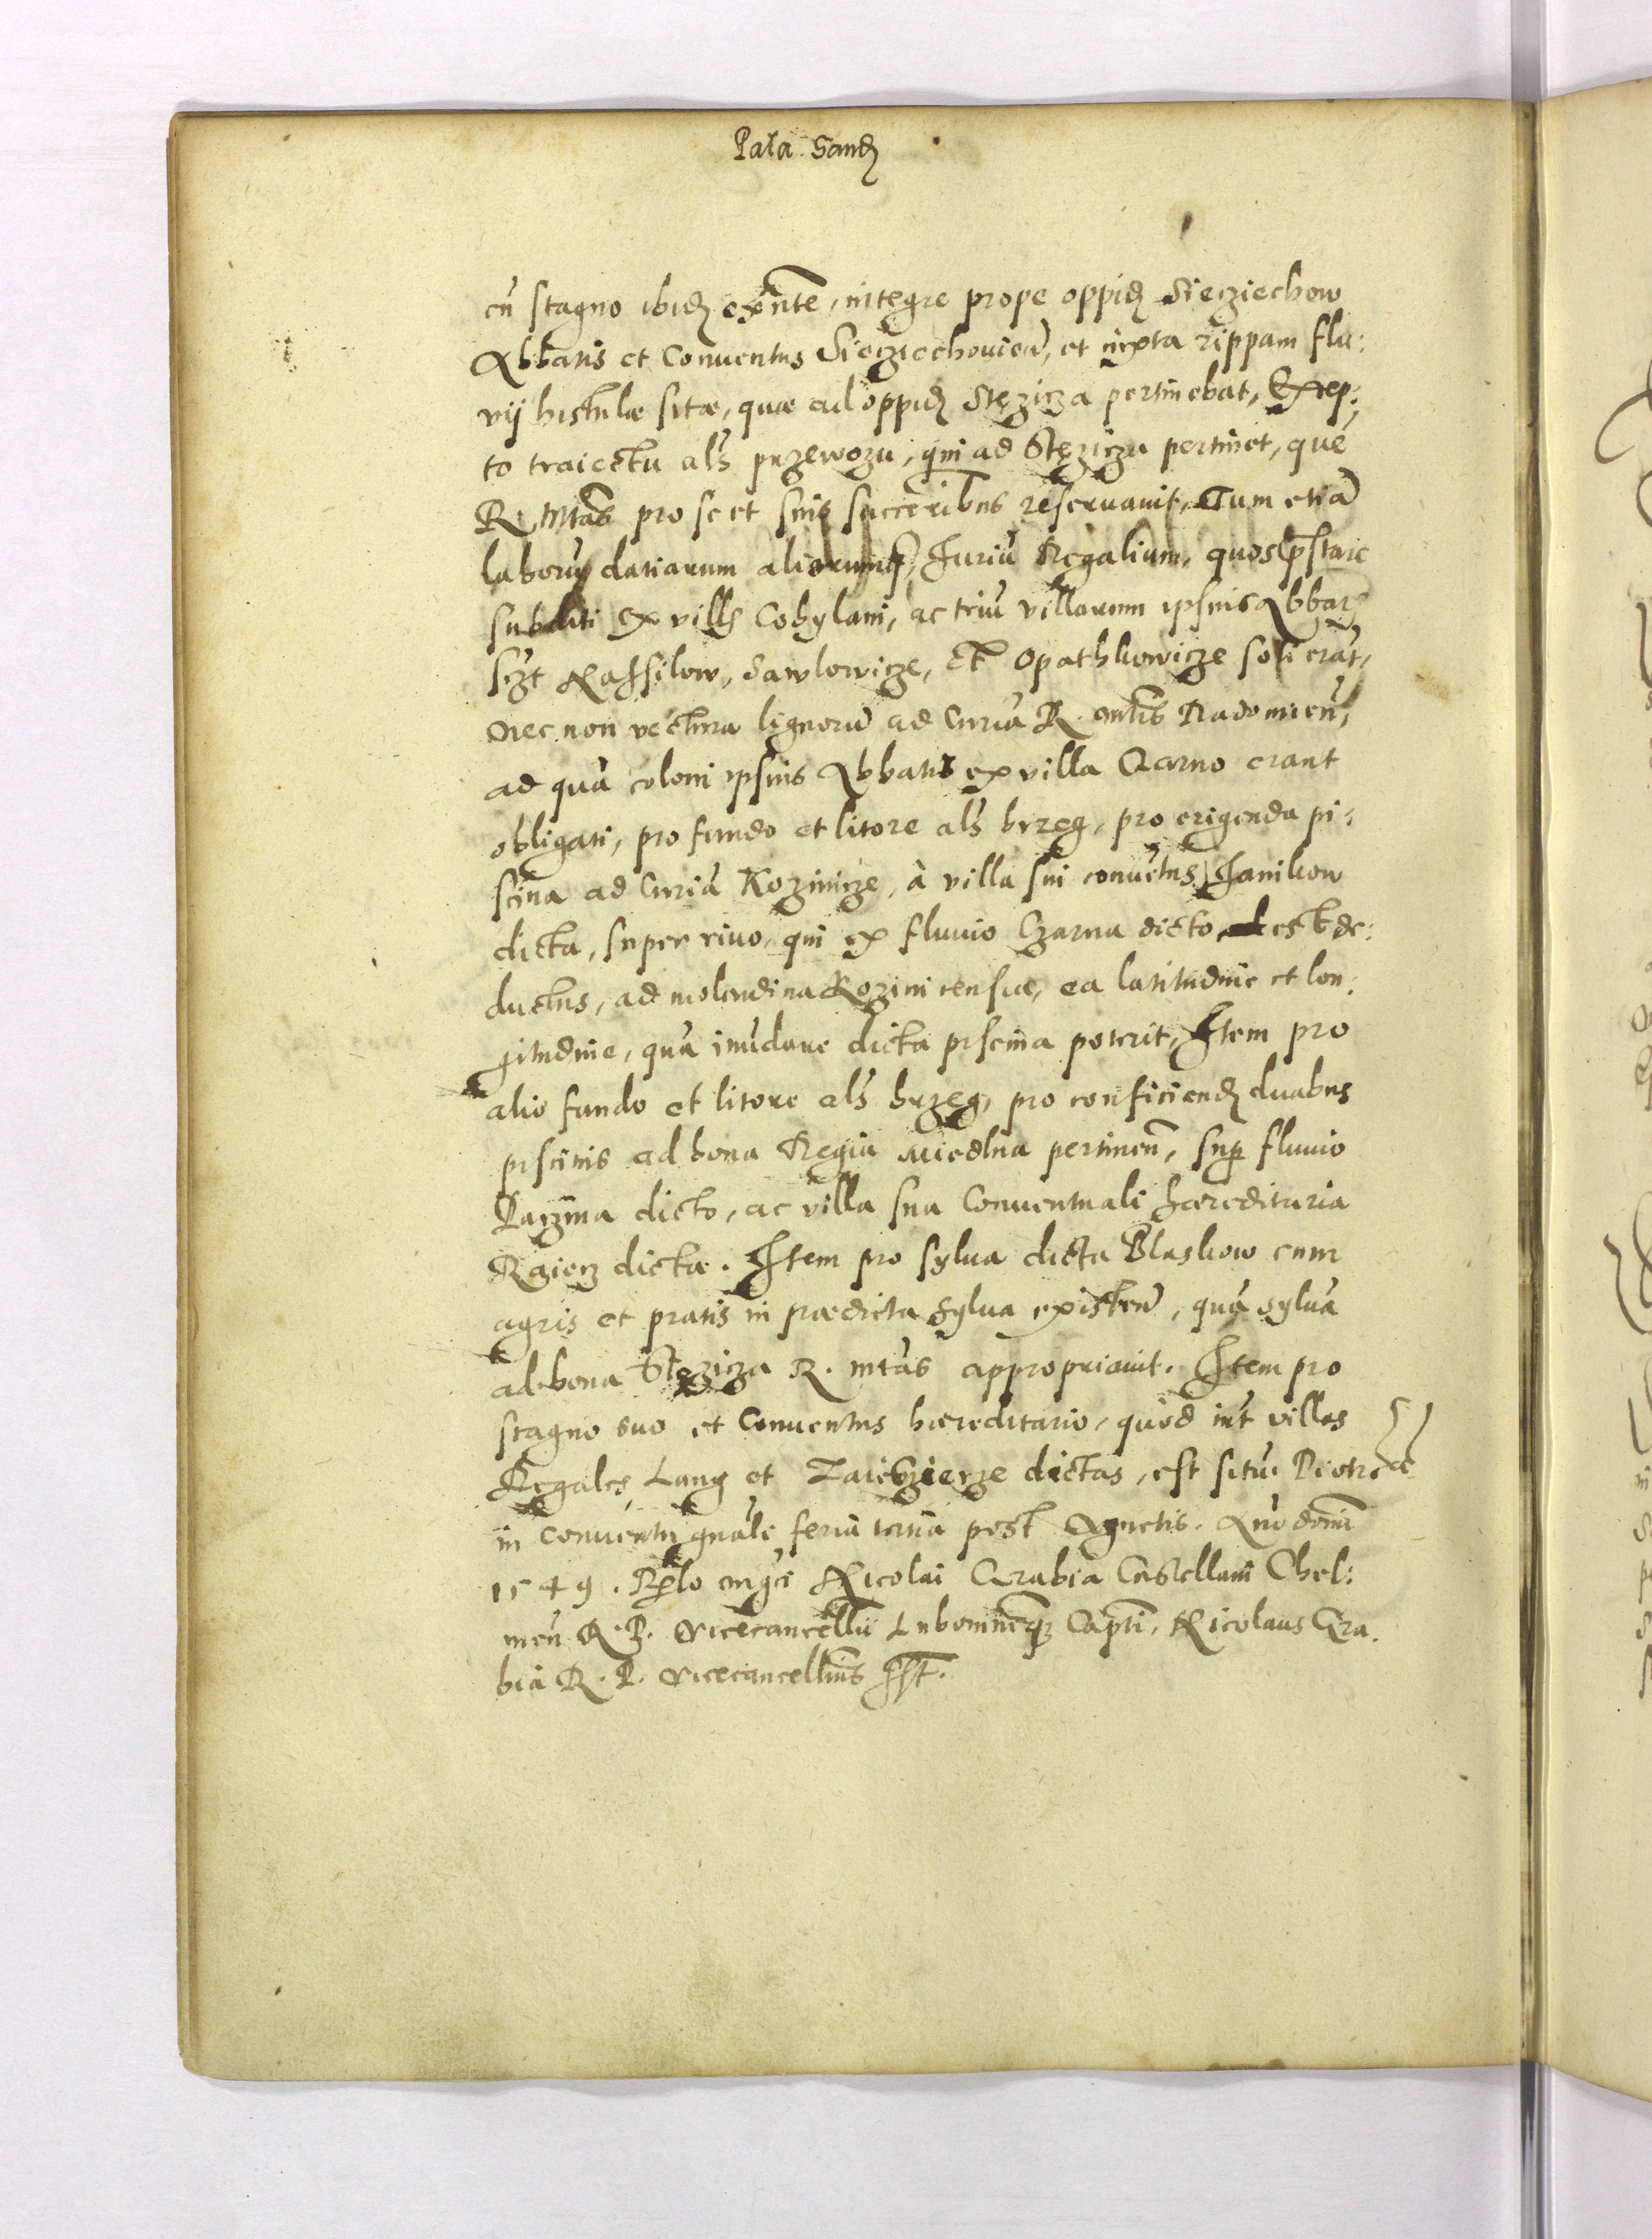 Pala Sand
cū stagno ibid exnte, integre prope oppid Sieciechow
Abbatis et Conventus Sieciechovien, et iuxta rippam flu:
vij histulæ sitæ, quæ ad oppid Stęzicza pertinebat, Excep:
to traiectu als przewozu, qui ad Stęziczą pertinet, quē
R. Mtas pro se et suis succeribus reservavit, Tum etiā
laborū datiarum aliorumq Juriū Regalium, quos pstare
subditi ex villis Cobylani, ac triū villarum ipsius Abbatis
szt Nassilow, Sawlowicze, et Opathkowicze soli erāt,
nec non vectura lignorū ad Curiā R. Mtis Radomien,
ad quā coloni ipsius Abbatis ex villa Czarno erant
obligati, pro fundo et litore als brzeg, pro erigenda pi:
scina ad Curiā Kozinicze, à villa sui convētus Janikow
dicta, super rivo, qui ex fluvio Czarna dicto est de:
ductus, ad molendina Kozinicensia, ea latitudine et lon:
gitudine, quā inūdare dicta piscina poterit, Item pro
alio fundo et litore als brzeg, pro conficiend duabus
piscinis ad bona Regia Miedlna pertinen, sup fluvio
Paczina dicto, ac villa sua Conventuali hæreditaria
Rzierz dicta. Item pro sylva dicta Blaskow cum
agris et pratis in prædicta sylva existen, quā sylvā
ad bona Stęzicza R. mtas appropriavit. Item pro
stagno suo et Conventus hæreditario, quod int villas
Regales Lany et Zaiezierze dictas, est sitū. Piotrcoæ
in conventu gnali feria tertia post Agnetis. Ano domi
1549. Rlo mgci Nicolai Grabia Castellani Chel:
men R. P. Vicecancellii Lubomlieq Capti, Nicolaus Gra
bia R. P. Vicecancellius sst.